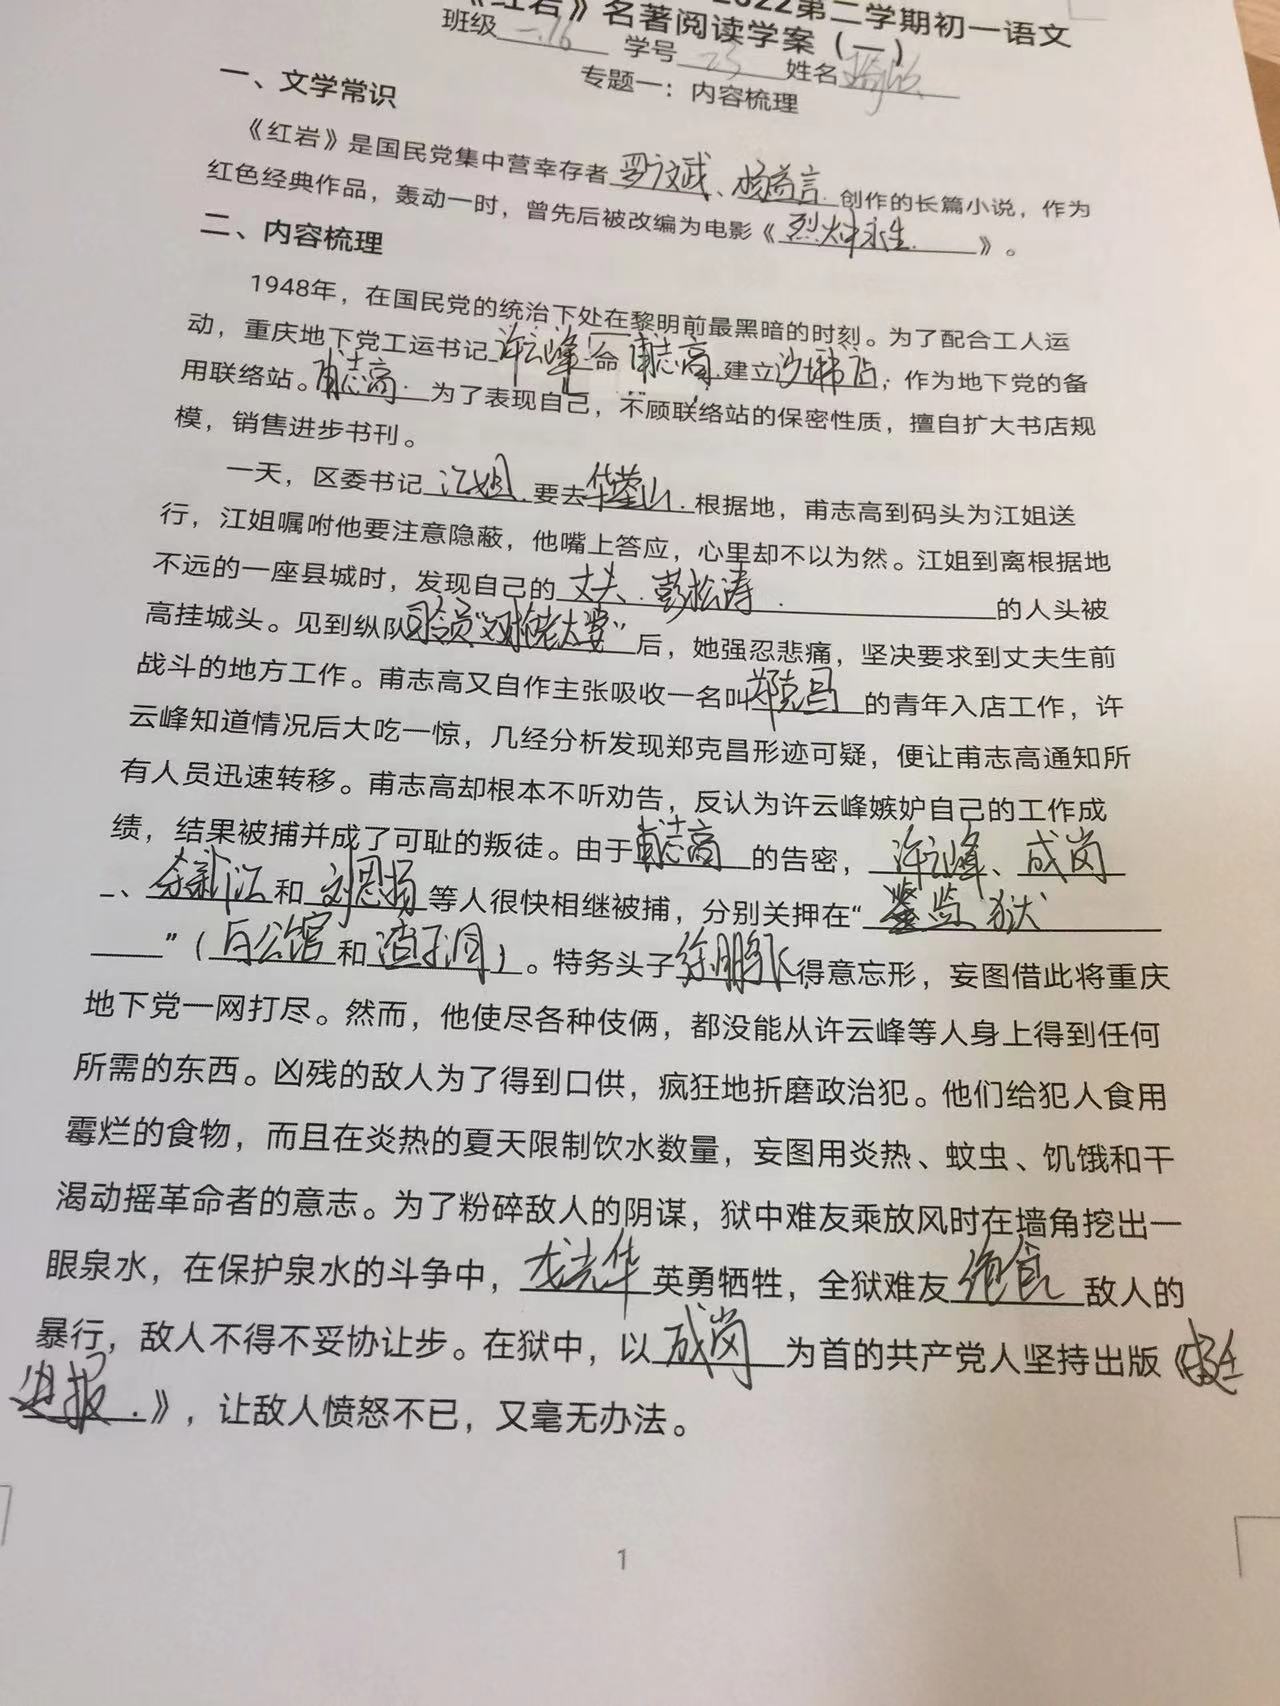 2022第二学期初一语文
《红岩》名著阅读学案（一）
班级 一.16 学号 23 姓名
专题一：内容梳理
一、文学常识
《红岩》是国民党集中营幸存者罗广斌、杨益言创作的长篇小说，作为
红色经典作品，轰动一时，曾先后被改编为电影《烈火中永生》。
二、内容梳理
1948年，在国民党的统治下处在黎明前最黑暗的时刻。为了配合工人运
动，重庆地下党工运书记许云峰命甫志高建立沙坪书店，作为地下党的备
用联络站。甫志高为了表现自己，不顾联络站的保密性质，擅自扩大书店规
模，销售进步书刊。
一天，区委书记江姐要去华蓥山根据地，甫志高到码头为江姐送
行，江姐嘱咐他要注意隐蔽，他嘴上答应，心里却不以为然。江姐到离根据地
不远的一座县城时，发现自己的丈夫彭松涛的人头被
高挂城头。见到纵队司令员“双枪老太婆”后，她强忍悲痛，坚决要求到丈夫生前
战斗的地方工作。甫志高又自作主张吸收一名叫郑克昌的青年入店工作，许
云峰知道情况后大吃一惊，几经分析发现郑克昌形迹可疑，便让甫志高通知所
有人员迅速转移。甫志高却根本不听劝告，反认为许云峰嫉妒自己的工作成
绩，结果被捕并成了可耻的叛徒。由于甫志高的告密，许云峰、成岗
、余新江和刘思扬等人很快相继被捕，分别关押在“监狱
”（白公馆和渣子洞）。特务头子徐鹏飞得意忘形，妄图借此将重庆
地下党一网打尽。然而，他使尽各种伎俩，都没能从许云峰等人身上得到任何
所需的东西。凶残的敌人为了得到口供，疯狂地折磨政治犯。他们给犯人食用
霉烂的食物，而且在炎热的夏天限制饮水数量，妄图用炎热、蚊虫、饥饿和干
渴动摇革命者的意志。为了粉碎敌人的阴谋，狱中难友乘放风时在墙角挖出一
眼泉水，在保护泉水的斗争中，龙光华英勇牺牲，全狱难友绝食敌人的
暴行，敌人不得不妥协让步。在狱中，以成岗为首的共产党人坚持出版《挺
进报》，让敌人愤怒不已，又毫无办法。
1